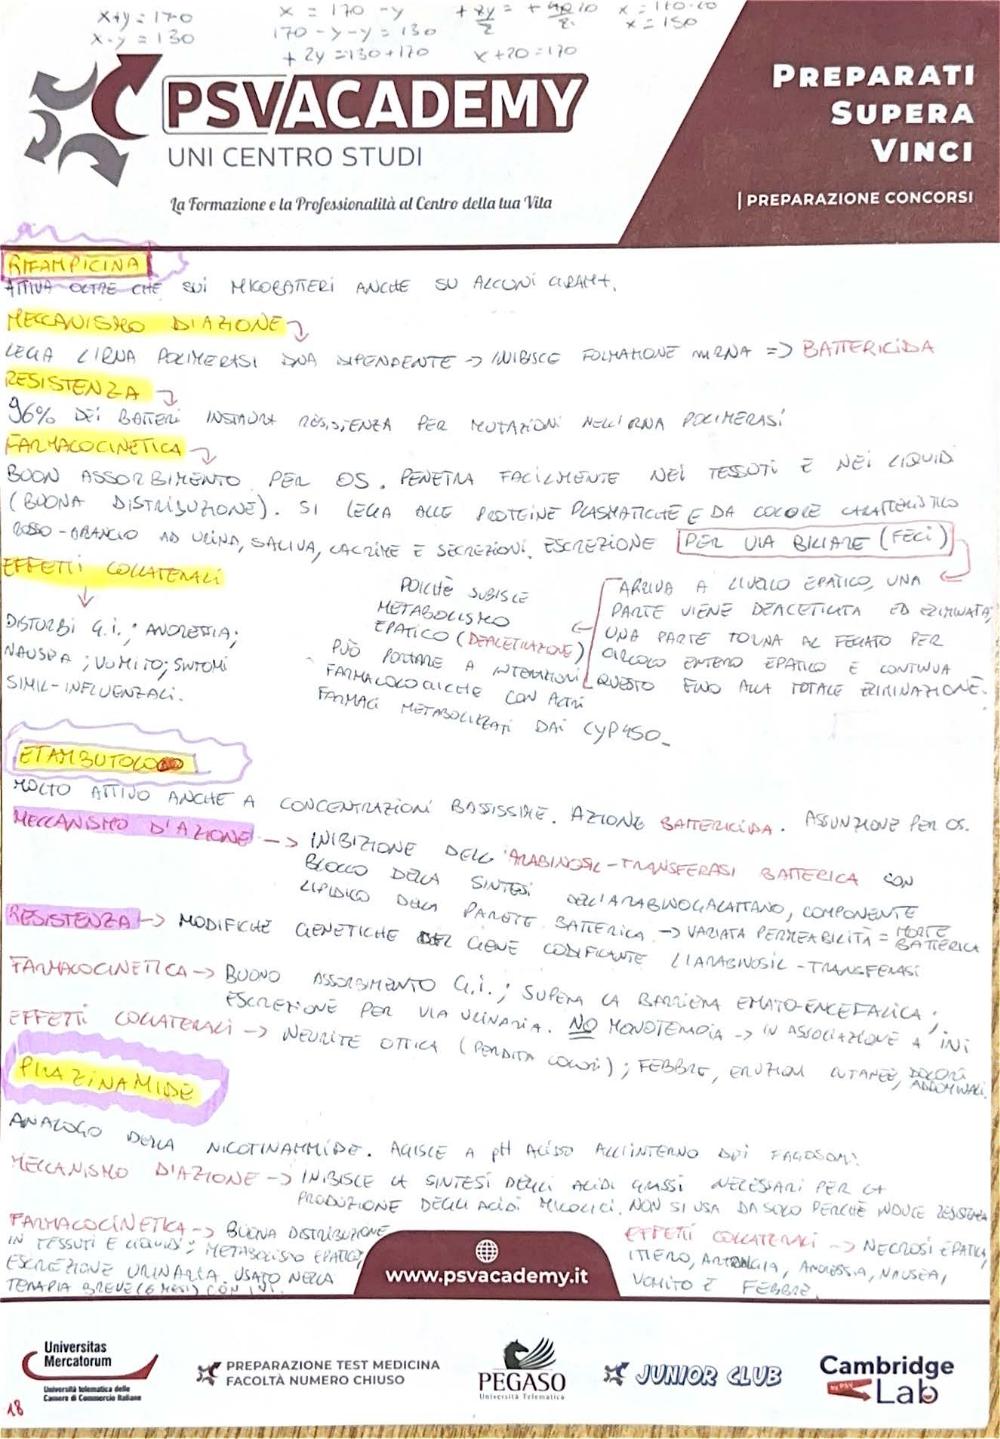 x+y=170
x-y=130
x = 170-y
170-y-y=130
+2y=130+170
x+20=170
x=150
PSVACADEMY
UNI CENTRO STUDI
La Formazione e la Professionalità al Centro della tua Vita
PREPARATI
SUPERA
VINCI
| PREPARAZIONE CONCORSI
RIFAMPICINA
ATTIVA OLTRE CHE SUI MICOBATTERI ANCHE SU ALCUNI GRAM+.
MECCANISMO D'AZIONE
LEGA L'RNA POLIMERASI DNA DIPENDENTE -> INIBISCE FORMAZIONE mRNA => BATTERICIDA
RESISTENZA
96% DEI BATTERI INSTAURA RESISTENZA PER MUTAZIONI NELL'RNA POLIMERASI
FARMACOCINETICA
BUON ASSORBIMENTO PER OS. PENETRA FACILMENTE NEI TESSUTI E NEI LIQUIDI
(BUONA DISTRIBUZIONE). SI LEGA ALLE PROTEINE PLASMATICHE E DA COLORE CARATTERISTICO
ROSSO-ARANCIO AD URINA, SALIVA, LACRIME E SECREZIONI. ESCREZIONE PER VIA BILIARE (FECI)
ARRIVA A LIVELLO EPATICO, UNA
PARTE VIENE DEACETILATA ED ELIMINATA;
UNA PARTE TORNA AL FEGATO PER
CIRCOLO ENTERO EPATICO E CONTINUA
QUESTO FINO ALLA TOTALE ELIMINAZIONE.
POICHÈ SUBISCE
METABOLISMO
EPATICO (DEACETILAZIONE)
PUÒ PORTARE A INTERAZIONI
FARMACOLOGICHE CON ALTRI
FARMACI METABOLIZZATI DAI CYP450_
EFFETTI COLLATERALI
DISTURBI G.I.; ANORESSIA;
NAUSEA; VOMITO; SINTOMI
SIMIL-INFLUENZALI.
ETAMBUTOLO
MOLTO ATTIVO ANCHE A CONCENTRAZIONI BASSISSIME. AZIONE BATTERICIDA. ASSUNZIONE PER OS.
MECCANISMO D'AZIONE --> INIBIZIONE DELL'ARABINOSIL-TRANSFERASI BATTERICA CON
BLOCCO DELLA SINTESI DELL'ARABINOGALATTANO, COMPONENTE
LIPIDICO DELLA PARETE BATTERICA -> VARIATA PERMEABILITÀ = MORTE BATTERICA
RESISTENZA -> MODIFICHE GENETICHE DEL GENE CODIFICANTE L'ARABINOSIL-TRANSFERASI
FARMACOCINETICA -> BUONO ASSORBIMENTO G.I.; SUPERA LA BARRIERA EMATO-ENCEFALICA;
ESCREZIONE PER VIA URINARIA. NO MONOTERAPIA -> IN ASSOCIAZIONE A INI
EFFETTI COLLATERALI -> NEURITE OTTICA (PERDITA COLORI); FEBBRE, ERUZIONI CUTANEE, DOLORI ADDOMINALI.
PIRAZINAMIDE
ANALOGO DELLA NICOTINAMMIDE. AGISCE A pH ACIDO ALL'INTERNO DEI FAGOSOMI.
MECCANISMO D'AZIONE -> INIBISCE LA SINTESI DEGLI ACIDI GRASSI NECESSARI PER LA
PRODUZIONE DEGLI ACIDI MICOLICI. NON SI USA DA SOLO PERCHÈ INDUCE RESISTENZA
FARMACOCINETICA -> BUONA DISTRIBUZIONE
IN TESSUTI E LIQUIDI; METABOLISMO EPATICO;
ESCREZIONE URINARIA. USATO NELLA
TERAPIA BREVE (6 MESI) CON INI.
EFFETTI COLLATERALI -> NECROSI EPATICA,
ITTERO, ARTRALGIA, ANORESSIA, NAUSEA,
VOMITO E FEBBRE.
www.psvacademy.it
Universitas
Mercatorum
Università telematica delle
Camere di Commercio Italiane
PREPARAZIONE TEST MEDICINA
FACOLTÀ NUMERO CHIUSO
PEGASO
Università Telematica
JUNIOR CLUB
Cambridge
by PSV Lab
18